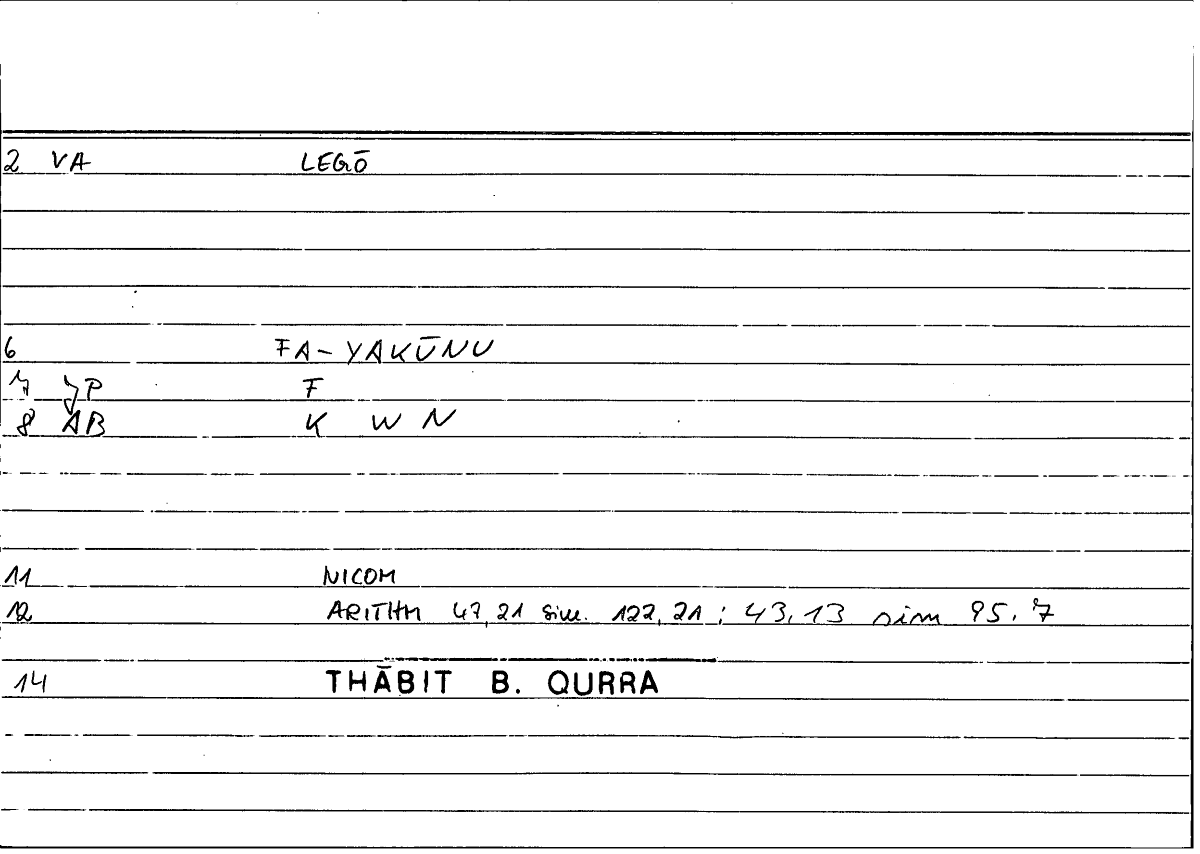 2 VA LEGŌ
6 FA-YAKŪNU
7 JP F
8 AB K W N
11 NICOM
12 ARITHM 47,21 sim. 122,21; 43,13 sim 95,7
14 THĀBIT B. QURRA